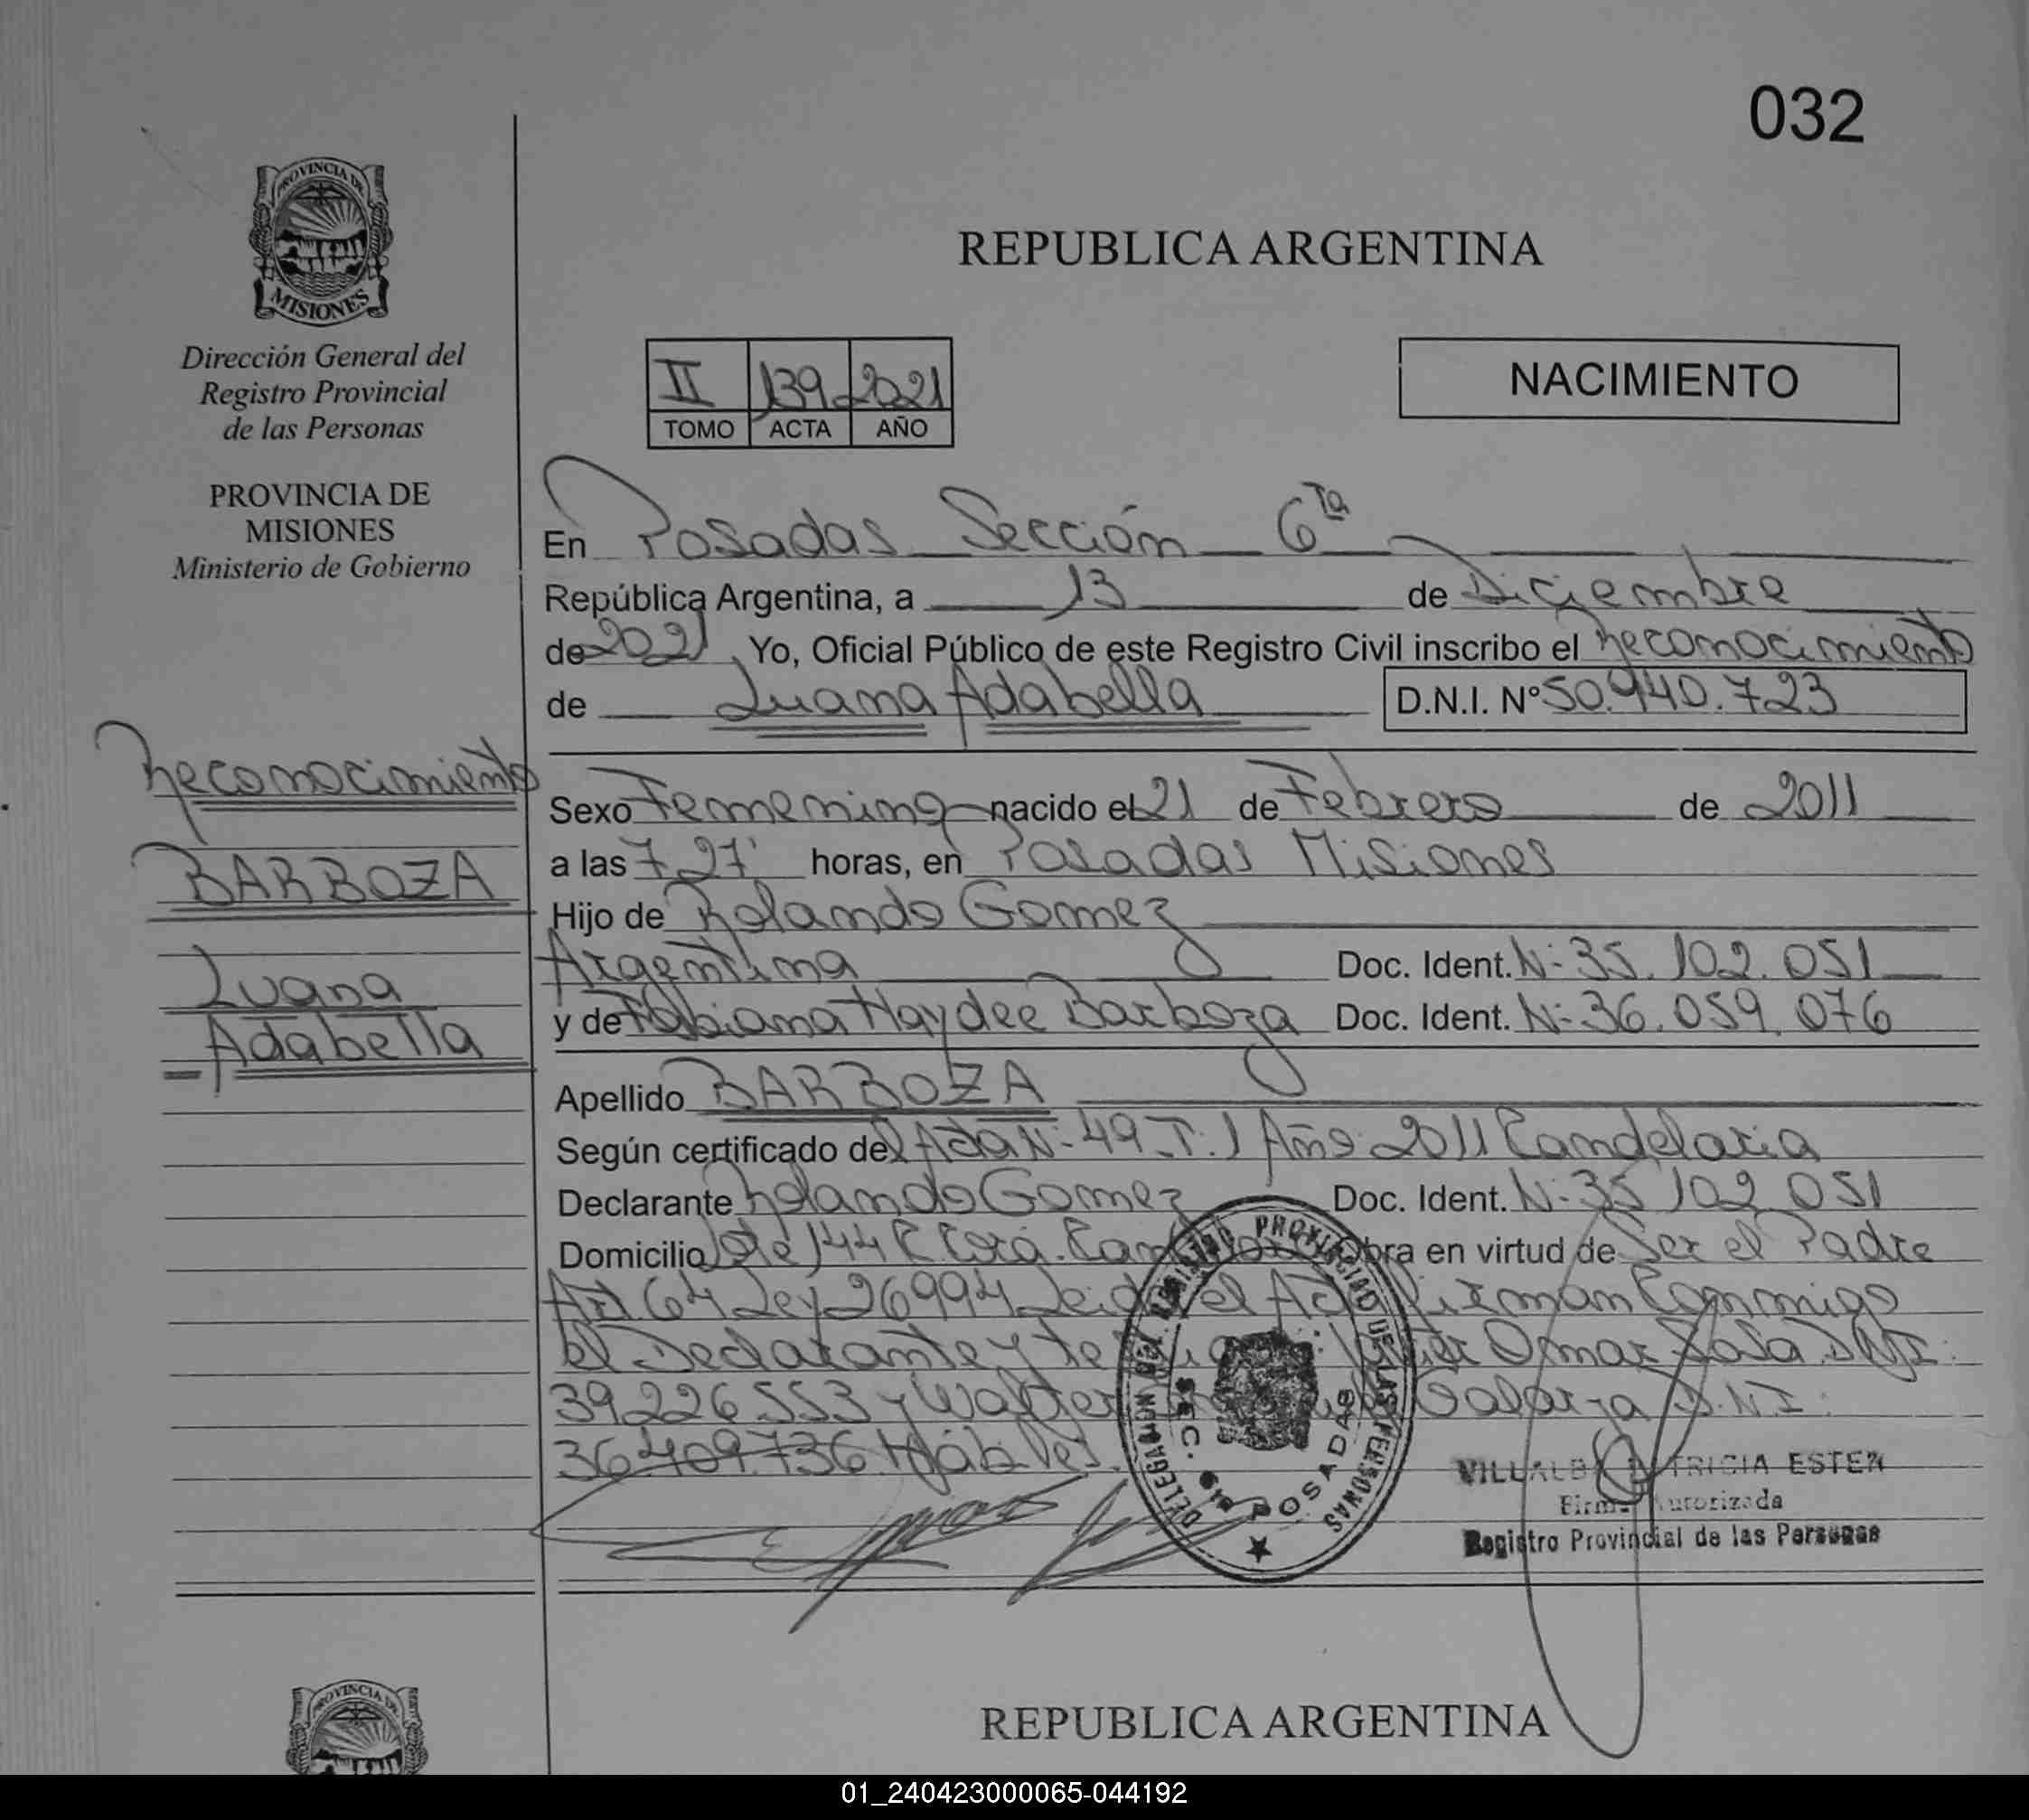 032
PROVINCIA DE
MISIONES
Dirección General del
Registro Provincial
de las Personas
PROVINCIA DE
MISIONES
Ministerio de Gobierno
REPUBLICA ARGENTINA
II 139 2021
TOMO ACTA AÑO
NACIMIENTO
En Posadas Sección 6ta
República Argentina, a 13 de Diciembre
de 2021, Yo, Oficial Público de este Registro Civil inscribo el Reconocimiento
de Luana Adabella D.N.I. Nº 50.940.723
Reconocimiento
BARBOZA
Luana
Adabella
Sexo Femenino nacido el 21 de Febrero de 2011
a las 7 27' horas, en Posadas Misiones
Hijo de Rolando Gomez
Argentina Doc. Ident. N= 35.102.051
y de Fabiana Haydee Barboza Doc. Ident. N= 36.059.076
Apellido BARBOZA
Según certificado del Acta N= 49 T. I Año 2011 Candelaria
Declarante Rolando Gomez Doc. Ident. N= 35 102 051
Domicilio Lote 144 C Corá. obra en virtud de Ser el Padre
Art 64 Ley 26994 Leida el Acta firman Conmigo
el Declarante y Omar Sosa DNI:
39226553 y Walter Galarza D.N.I:
36.409.736 Hábiles.
DELEGACION DEL REGISTRO PROVINCIAL DE LAS PERSONAS
SEC. 6ta POSADAS
VILLALBA PATRICIA ESTER
Firma Autorizada
Registro Provincial de las Personas
PROVINCIA DE
REPUBLICA ARGENTINA
01_240423000065-044192